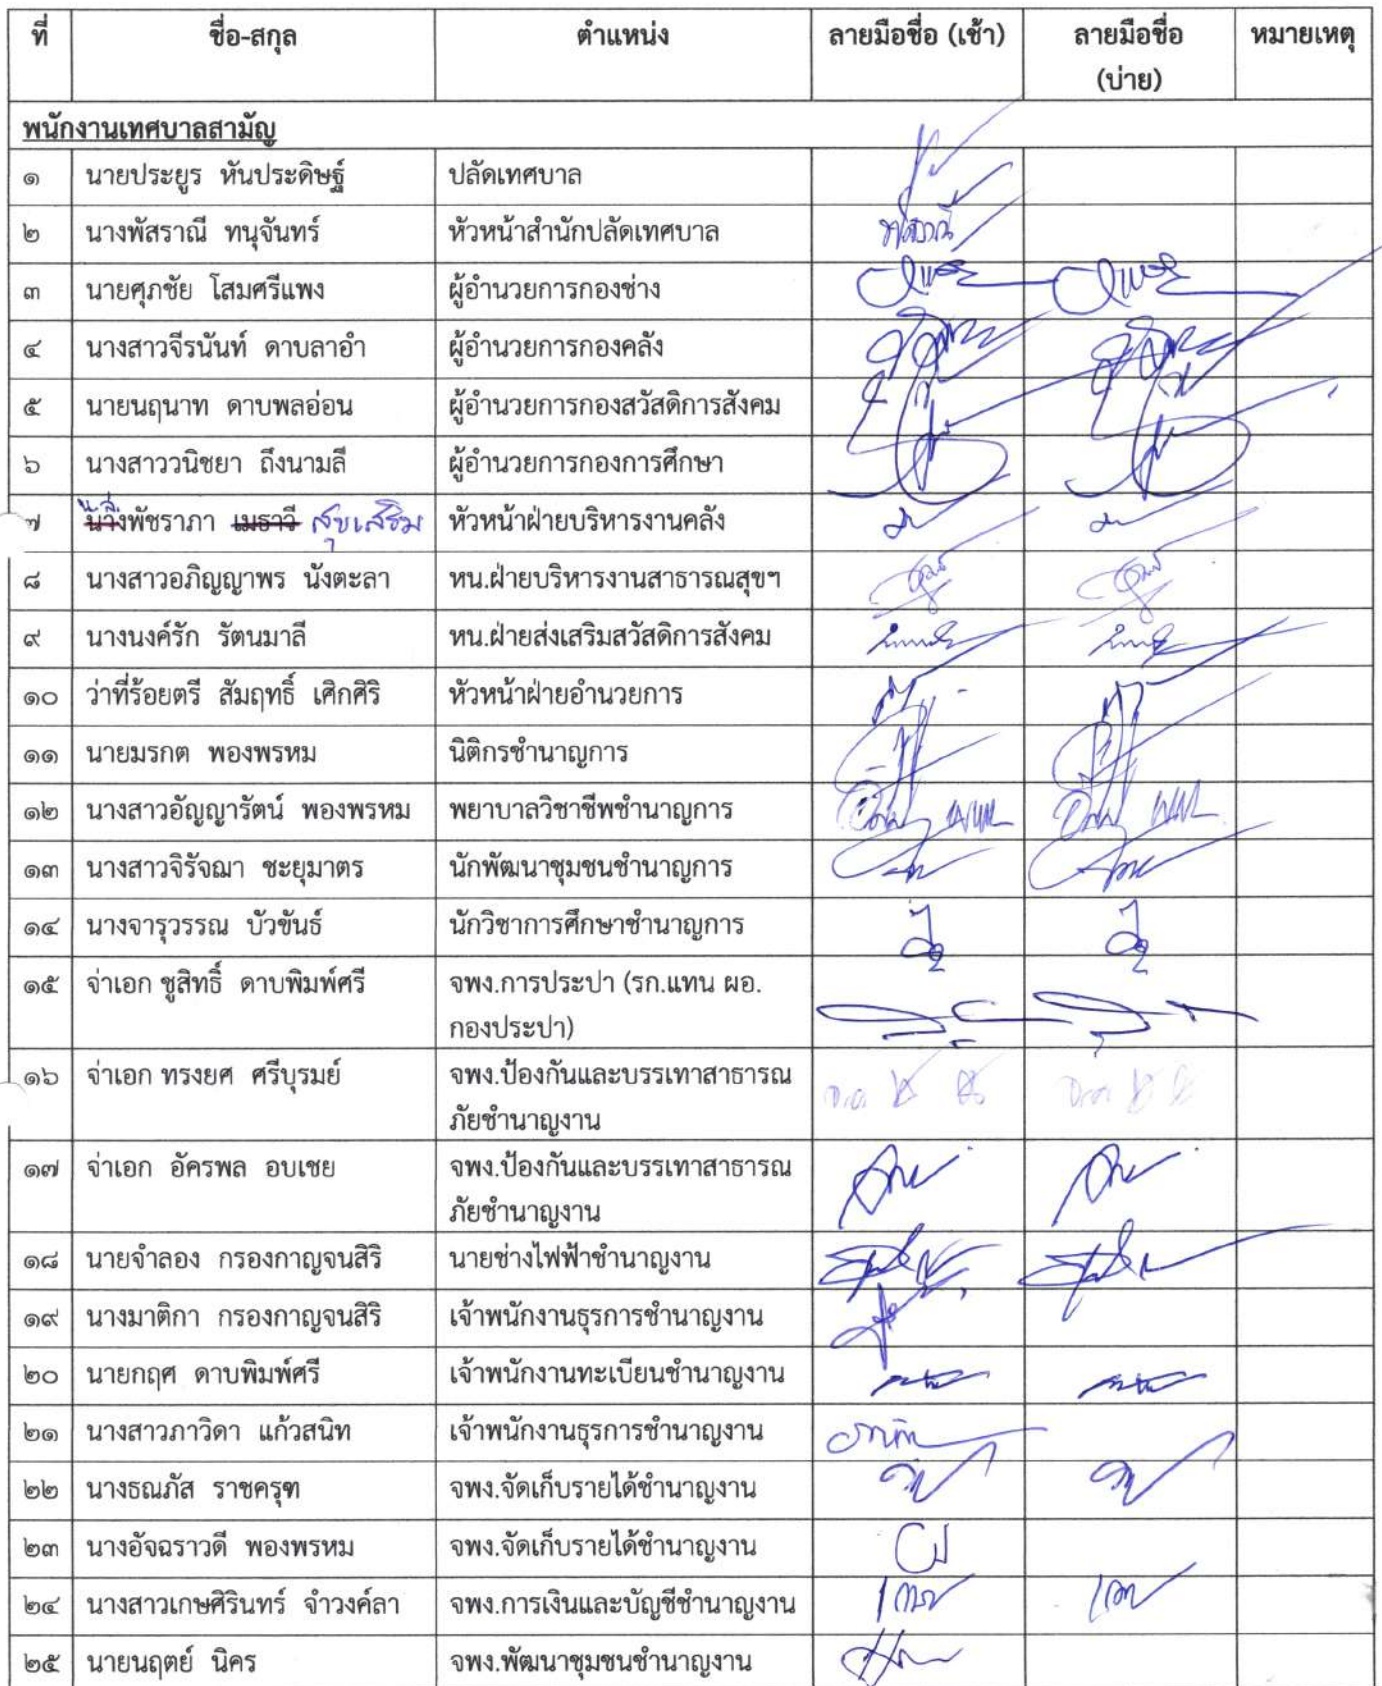 ที่ ชื่อ-สกุล ตำแหน่ง ลายมือชื่อ (เช้า) ลายมือชื่อ (บ่าย) หมายเหตุ
พนักงานเทศบาลสามัญ
๑ นายประยูร หันประดิษฐ์ ปลัดเทศบาล
๒ นางพัสราณี ทนุจันทร์ หัวหน้าสำนักปลัดเทศบาล พัสราณี
๓ นายศุภชัย โสมศรีแพง ผู้อำนวยการกองช่าง
๔ นางสาวจีรนันท์ ดาบลาอำ ผู้อำนวยการกองคลัง
๕ นายนฤนาท ดาบพลอ่อน ผู้อำนวยการกองสวัสดิการสังคม
๖ นางสาววนิชยา ถึงนามลี ผู้อำนวยการกองการศึกษา
๗ น.ส.พัชราภา เมธาวี สุขเสริม หัวหน้าฝ่ายบริหารงานคลัง
๘ นางสาวอภิญญาพร นังตะลา หน.ฝ่ายบริหารงานสาธารณสุขฯ
๙ นางนงค์รัก รัตนมาลี หน.ฝ่ายส่งเสริมสวัสดิการสังคม
๑๐ ว่าที่ร้อยตรี สัมฤทธิ์ เศิกศิริ หัวหน้าฝ่ายอำนวยการ
๑๑ นายมรกต พองพรหม นิติกรชำนาญการ
๑๒ นางสาวอัญญารัตน์ พองพรหม พยาบาลวิชาชีพชำนาญการ
๑๓ นางสาวจิรัจฌา ชะยุมาตร นักพัฒนาชุมชนชำนาญการ
๑๔ นางจารุวรรณ บัวขันธ์ นักวิชาการศึกษาชำนาญการ
๑๕ จ่าเอก ชูสิทธิ์ ดาบพิมพ์ศรี จพง.การประปา (รก.แทน ผอ.
กองประปา)
๑๖ จ่าเอก ทรงยศ ศรีบุรมย์ จพง.ป้องกันและบรรเทาสาธารณ
ภัยชำนาญงาน
๑๗ จ่าเอก อัครพล อบเชย จพง.ป้องกันและบรรเทาสาธารณ
ภัยชำนาญงาน
๑๘ นายจำลอง กรองกาญจนสิริ นายช่างไฟฟ้าชำนาญงาน
๑๙ นางมาติกา กรองกาญจนสิริ เจ้าพนักงานธุรการชำนาญงาน
๒๐ นายกฤศ ดาบพิมพ์ศรี เจ้าพนักงานทะเบียนชำนาญงาน
๒๑ นางสาวภาวิดา แก้วสนิท เจ้าพนักงานธุรการชำนาญงาน
๒๒ นางธณภัส ราชครุฑ จพง.จัดเก็บรายได้ชำนาญงาน
๒๓ นางอัจฉราวดี พองพรหม จพง.จัดเก็บรายได้ชำนาญงาน
๒๔ นางสาวเกษศิรินทร์ จำวงค์ลา จพง.การเงินและบัญชีชำนาญงาน
๒๕ นายนฤตย์ นิคร จพง.พัฒนาชุมชนชำนาญงาน